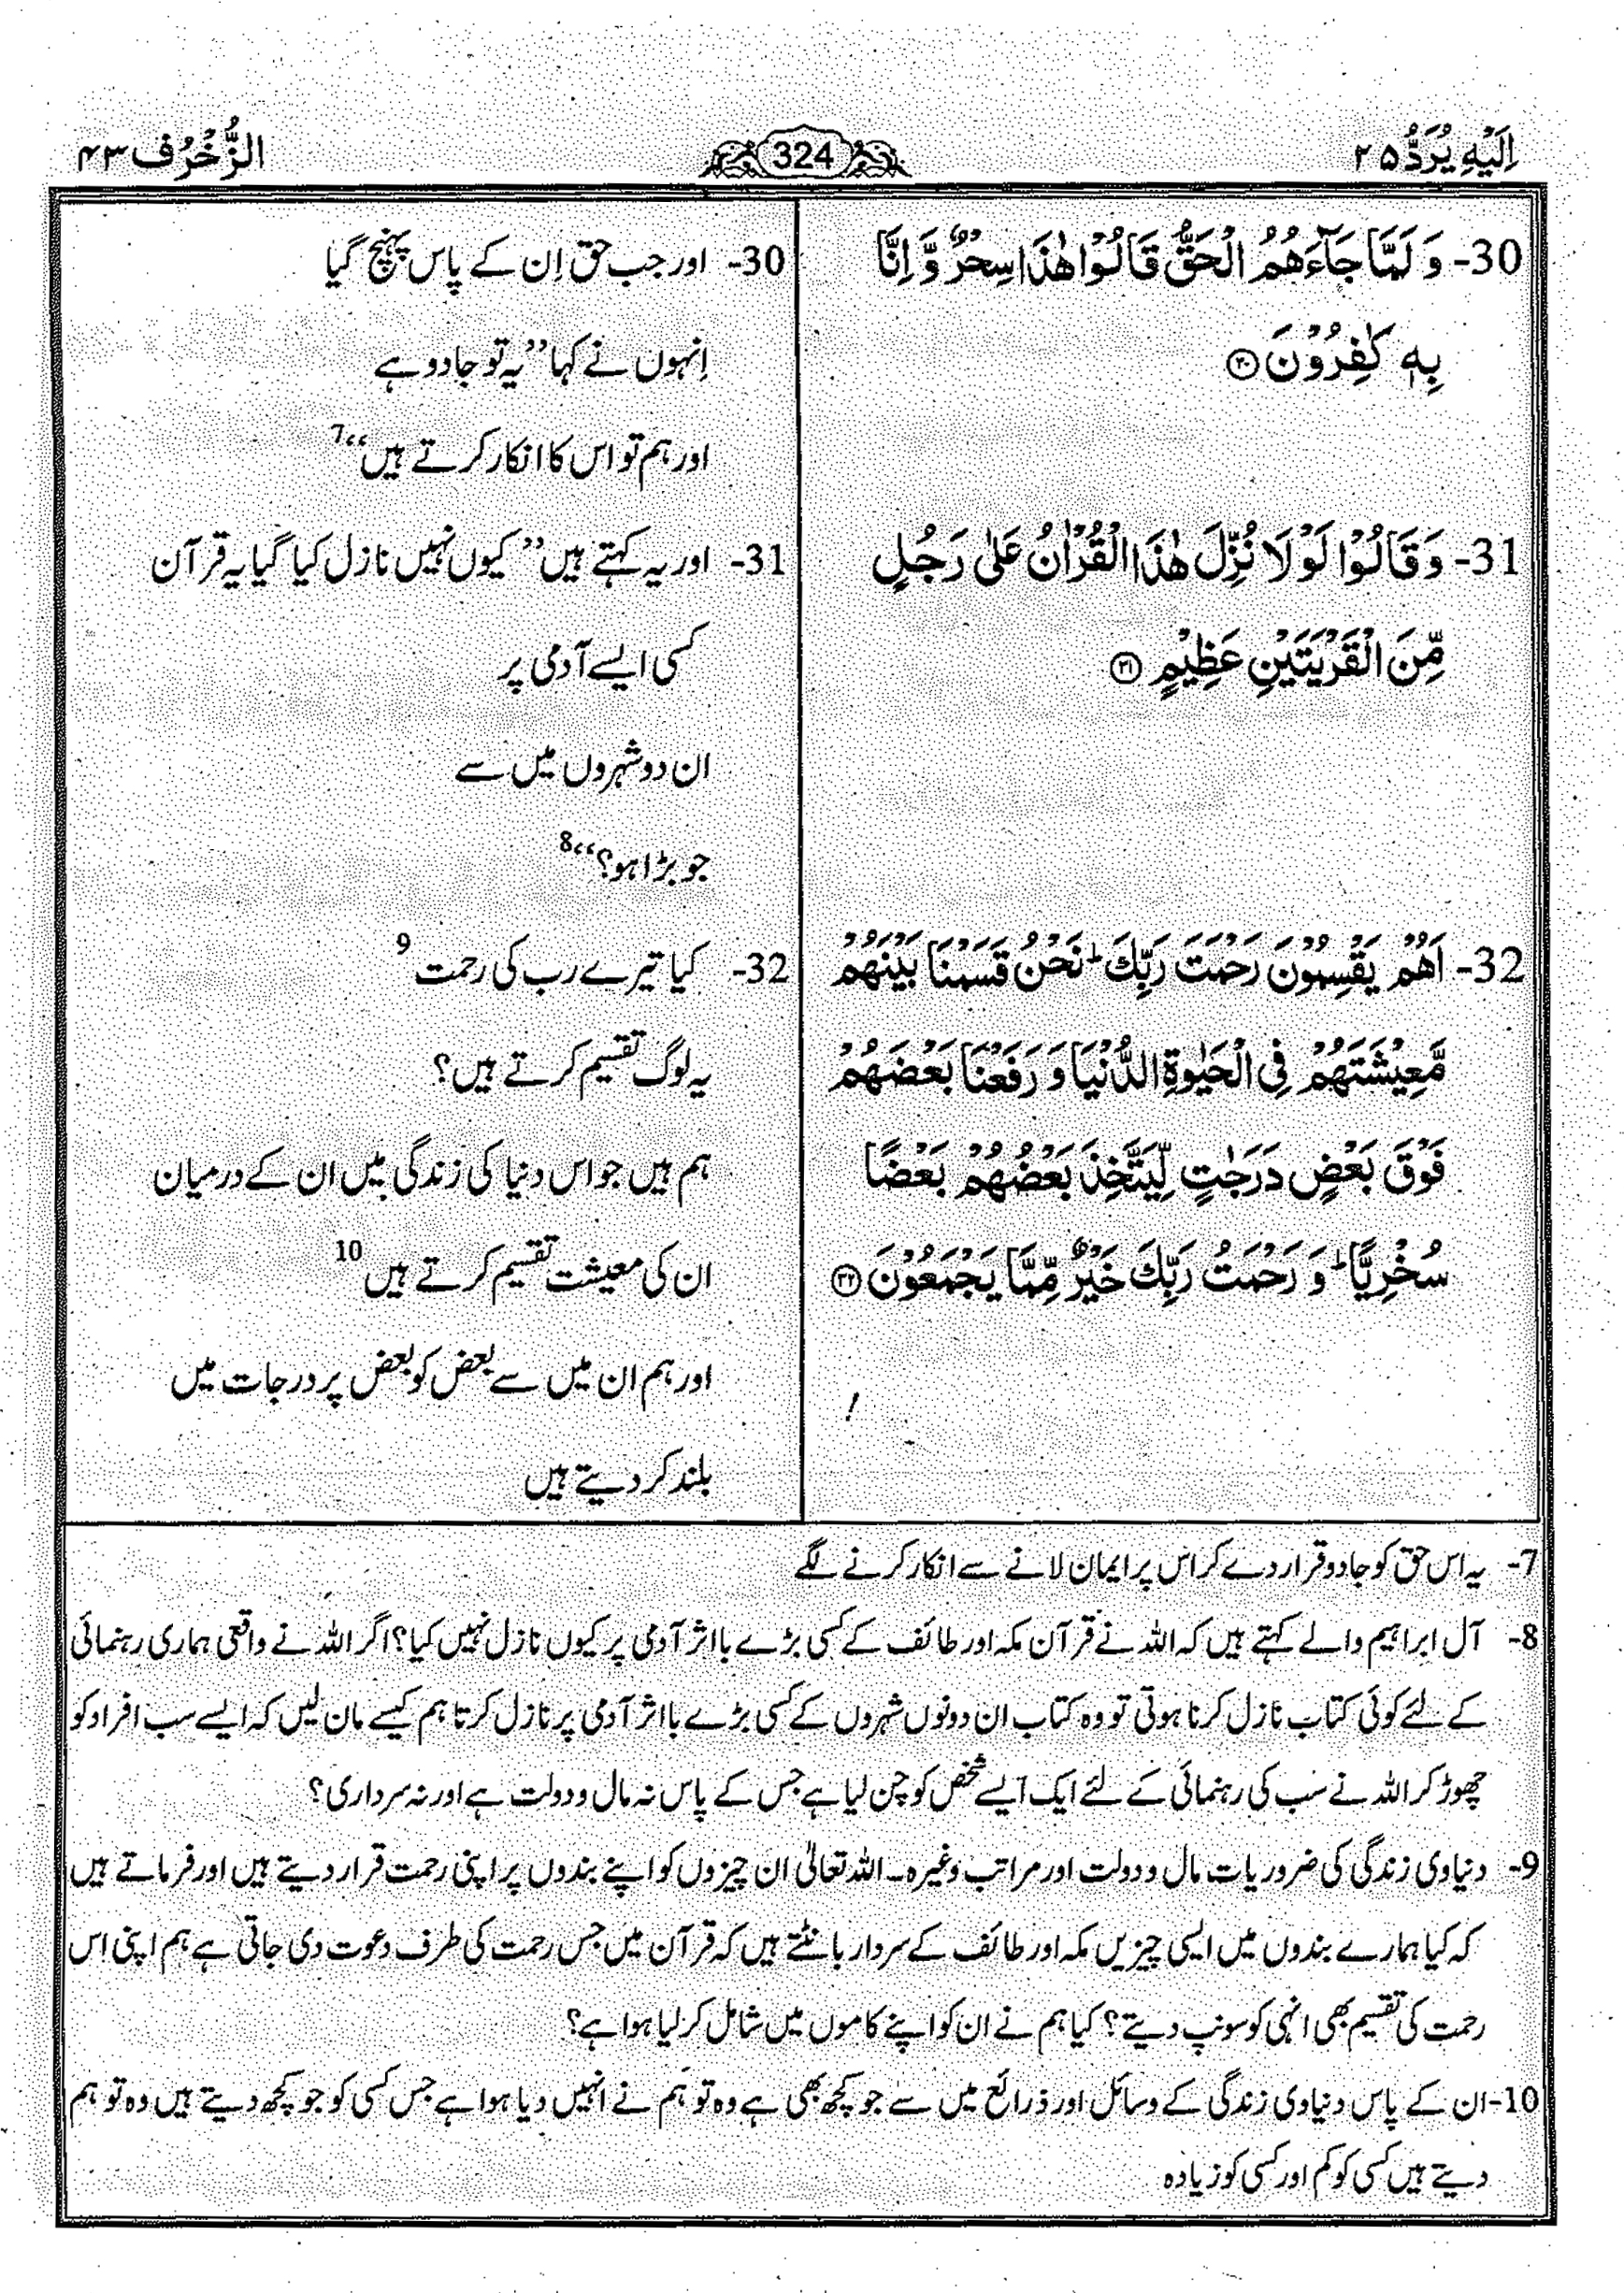 اِلَيْهِ يُرَدُّ ۲۵
324
الزُّخْرُف ۴۳
30- وَ لَمَّا جَآءَهُمُ الْحَقُّ قَالُوْا هٰذَا سِحْرٌ وَّ اِنَّا
بِهٖ كٰفِرُوْنَ ﴿۳۰﴾
31- وَ قَالُوْا لَوْ لَا نُزِّلَ هٰذَا الْقُرْاٰنُ عَلٰى رَجُلٍ
مِّنَ الْقَرْيَتَيْنِ عَظِيْمٍ ﴿۳۱﴾
32- اَهُمْ يَقْسِمُوْنَ رَحْمَتَ رَبِّكَ ؕ نَحْنُ قَسَمْنَا بَيْنَهُمْ
مَّعِيْشَتَهُمْ فِى الْحَيٰوةِ الدُّنْيَا وَ رَفَعْنَا بَعْضَهُمْ
فَوْقَ بَعْضٍ دَرَجٰتٍ لِّيَتَّخِذَ بَعْضُهُمْ بَعْضًا
سُخْرِيًّا ؕ وَ رَحْمَتُ رَبِّكَ خَيْرٌ مِّمَّا يَجْمَعُوْنَ ﴿۳۲﴾
30- اور جب حق اِن کے پاس پہنچ گیا
اِنہوں نے کہا ’’یہ تو جادو ہے
اور ہم تو اس کا انکار کرتے ہیں‘‘ 7
31- اور یہ کہتے ہیں ’’کیوں نہیں نازل کیا گیا یہ قرآن
کسی ایسے آدمی پر
ان دو شہروں میں سے
جو بڑا ہو؟‘‘ 8
32- کیا تیرے رب کی رحمت 9
یہ لوگ تقسیم کرتے ہیں؟
ہم ہیں جو اس دنیا کی زندگی میں ان کے درمیان
ان کی معیشت تقسیم کرتے ہیں 10
اور ہم ان میں سے بعض کو بعض پر درجات میں
بلند کر دیتے ہیں
7- یہ اس حق کو جادو قرار دے کر اس پر ایمان لانے سے انکار کرنے لگے
8- آل ابراہیم والے کہتے ہیں کہ اللہ نے قرآن مکہ اور طائف کے کسی بڑے بااثر آدمی پر کیوں نازل نہیں کیا؟ اگر اللہ نے واقعی ہماری رہنمائی
کے لئے کوئی کتاب نازل کرنا ہوتی تو وہ کتاب ان دونوں شہروں کے کسی بڑے بااثر آدمی پر نازل کرتا ہم کیسے مان لیں کہ ایسے سب افراد کو
چھوڑ کر اللہ نے سب کی رہنمائی کے لئے ایک ایسے شخص کو چن لیا ہے جس کے پاس نہ مال و دولت ہے اور نہ سرداری؟
9- دنیاوی زندگی کی ضروریات مال و دولت اور مراتب وغیرہ۔ اللہ تعالیٰ ان چیزوں کو اپنے بندوں پر اپنی رحمت قرار دیتے ہیں اور فرماتے ہیں
کہ کیا ہمارے بندوں میں ایسی چیزیں مکہ اور طائف کے سردار بانٹتے ہیں کہ قرآن میں جس رحمت کی طرف دعوت دی جاتی ہے ہم اپنی اس
رحمت کی تقسیم بھی انہی کو سونپ دیتے؟ کیا ہم نے ان کو اپنے کاموں میں شامل کر لیا ہوا ہے؟
10- ان کے پاس دنیاوی زندگی کے وسائل اور ذرائع میں سے جو کچھ بھی ہے وہ تو ہم نے انہیں دیا ہوا ہے جس کسی کو جو کچھ دیتے ہیں وہ تو ہم
دیتے ہیں کسی کو کم اور کسی کو زیادہ